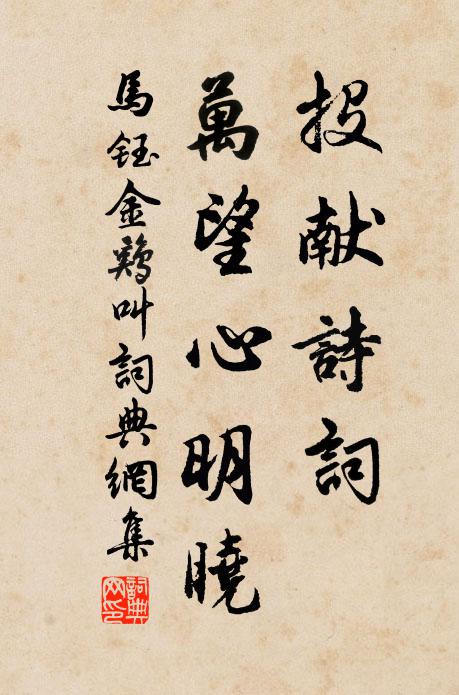 投献詩詞
萬望心明曉
馬鈺金鷄叫詞典網集
詞典网印